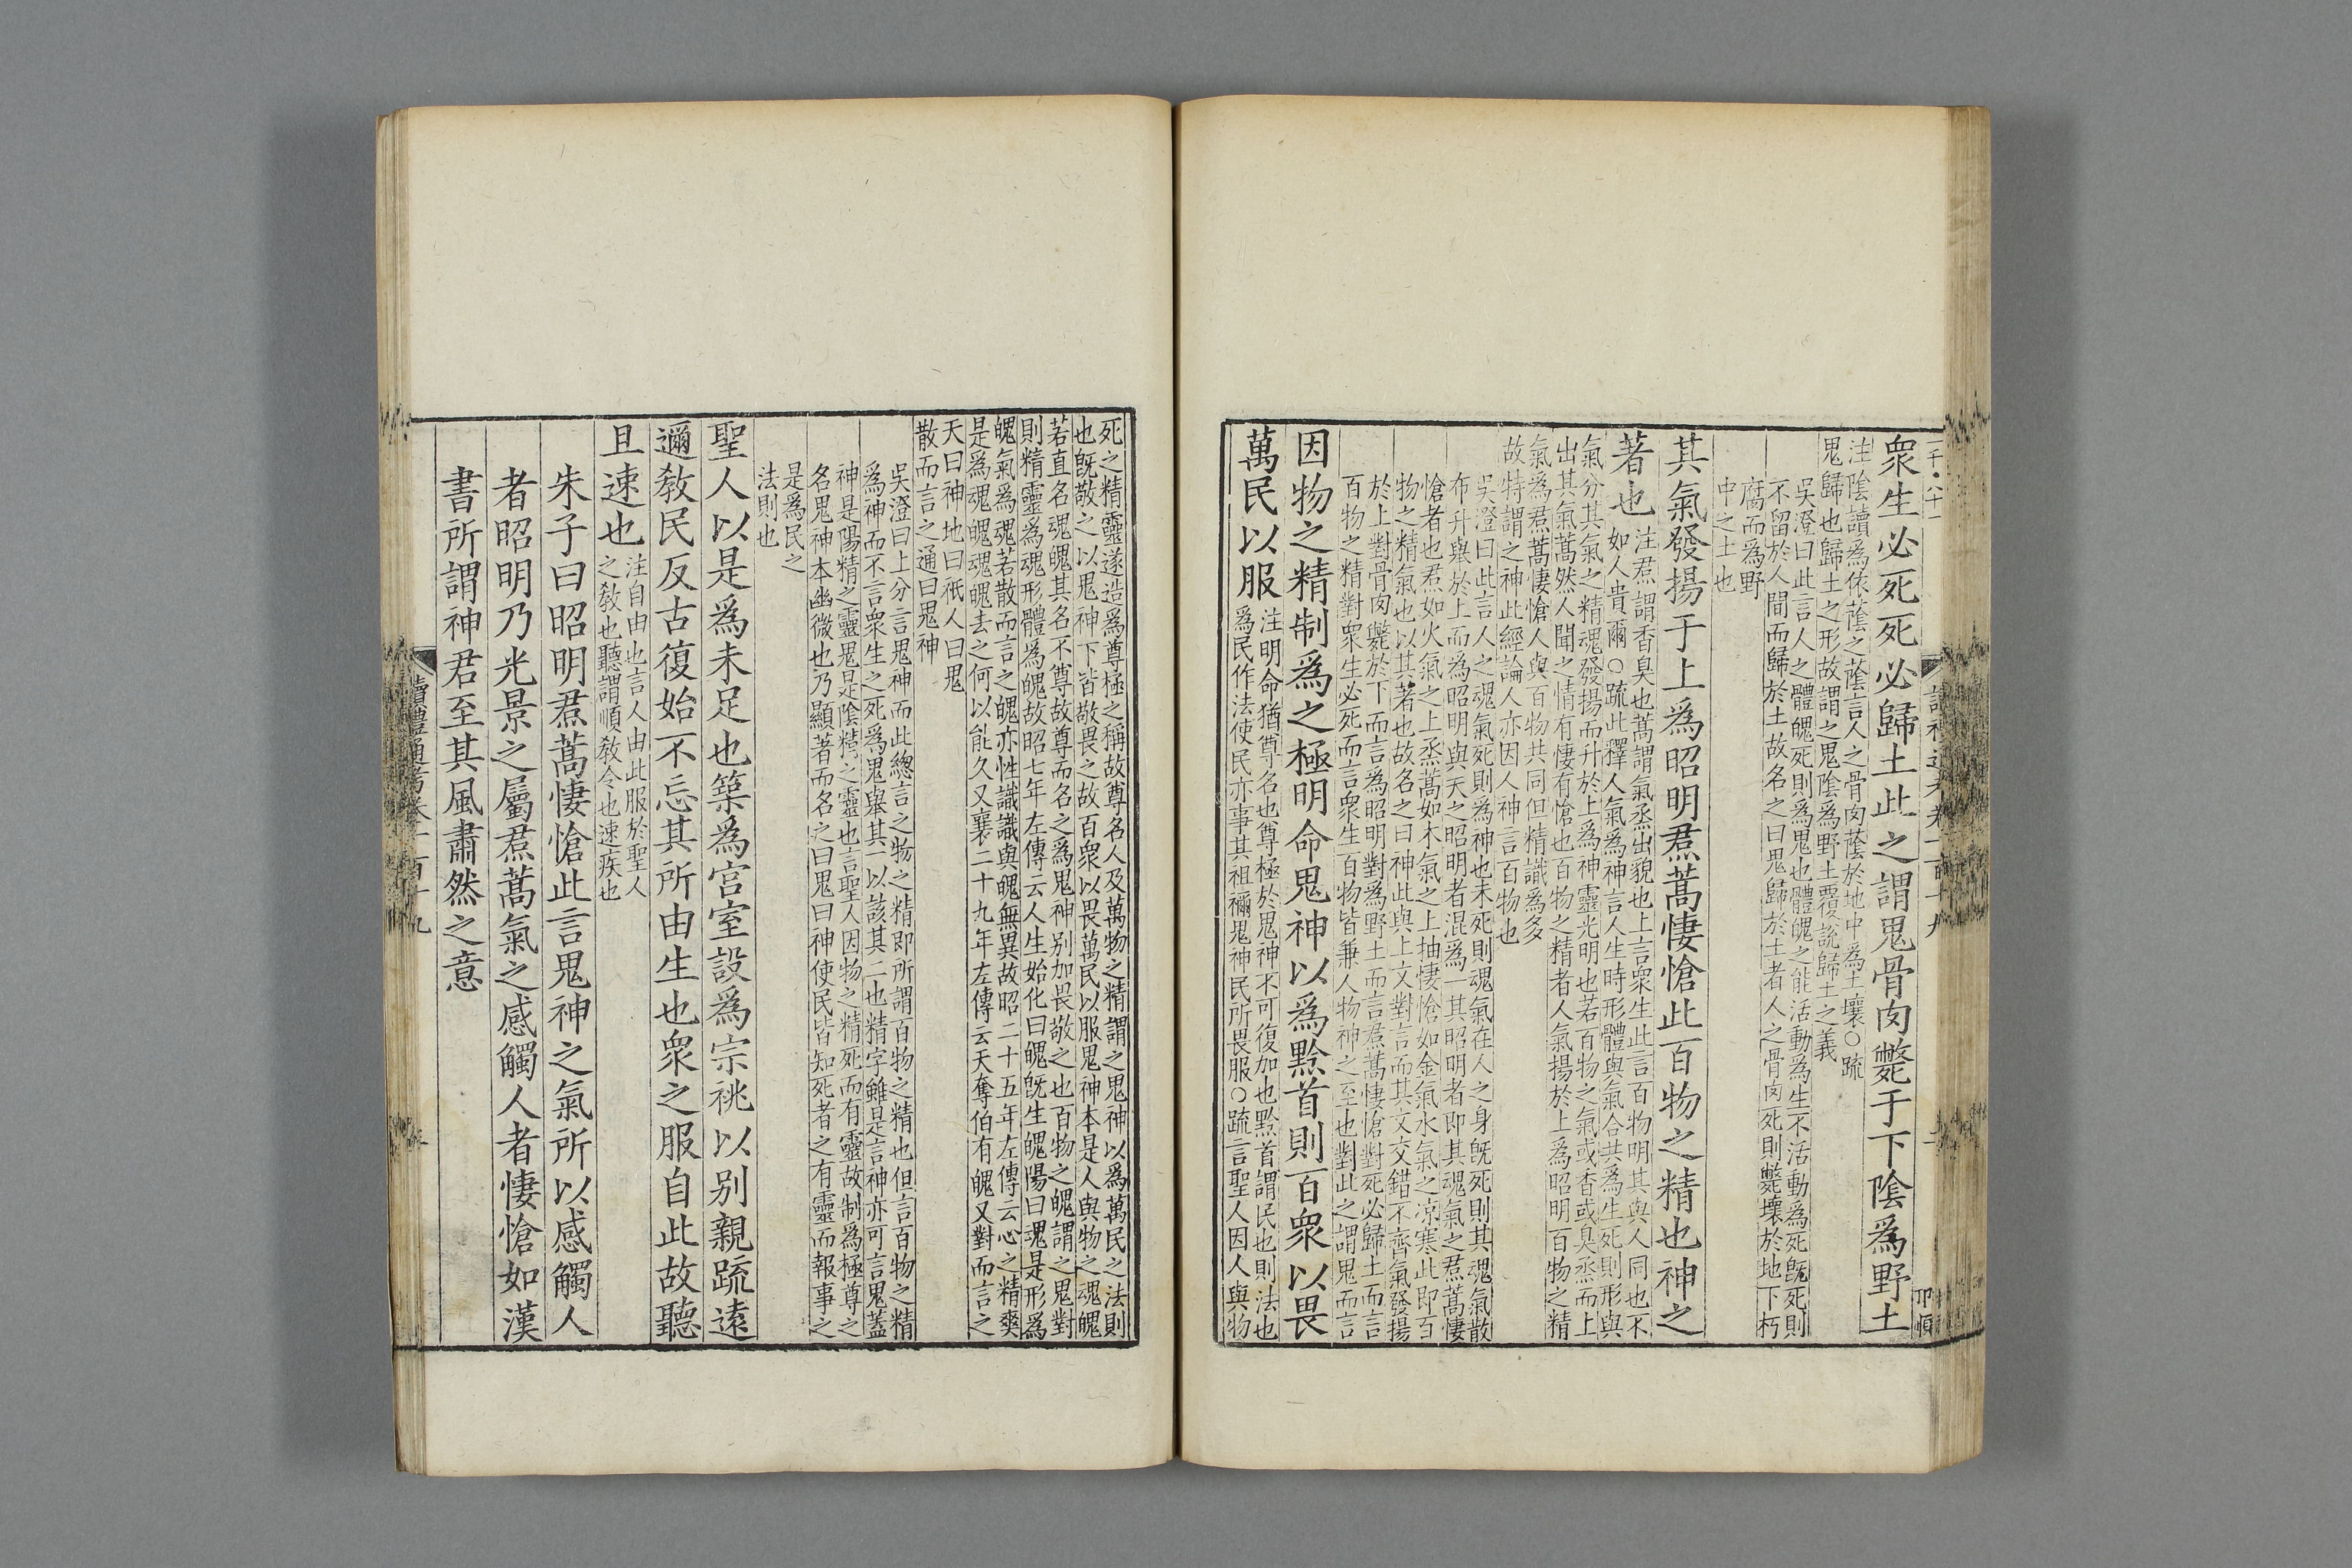 衆生必死死必歸土此之謂鬼骨肉斃于下陰爲野土
注陰讀爲依蔭之蔭言人之骨肉蔭於地中爲土壤○疏
鬼歸也歸土之形故謂之鬼陰爲野土覆說歸土之義
吳澄曰此言人之體魄死則爲鬼也體魄之能活動爲生不活動爲死旣死則
不留於人間而歸於土故名之曰鬼歸於土者人之骨肉死則斃壞於地下朽
腐而爲野
中之土也
其氣發揚于上爲昭明焄蒿悽愴此百物之精也神之
著也
注焄謂香臭也蒿謂氣烝出貌也上言衆生此言百物明其與人同也不
如人貴爾○疏此釋人氣爲神言人生時形體與氣合共爲生死則形與
氣分其氣之精魂發揚而升於上爲神靈光明也若百物之氣或香或臭烝而上
出其氣蒿然人聞之情有悽有愴也百物之精者人氣揚於上爲昭明百物之精
氣爲焄蒿悽愴人與百物共同但情識爲多
故特謂之神此經論人亦因人神言百物也
吳澄曰此言人之魂氣死則爲神也未死則魂氣在人之身旣死則其魂氣散
布升舉於上而爲昭明與天之昭明者混爲一其昭明者即其魂氣之焄蒿悽
愴者也焄如火氣之上烝蒿如木氣之上抽悽愴如金氣水氣之凉寒此即百
物之精氣也以其著也故名之曰神此與上文對言而其文交錯不齊氣發揚
於上對骨肉斃於下而言爲昭明對爲野土而言焄蒿悽愴對死必歸土而言
百物之精對衆生必死而言衆生百物皆兼人物神之至也對此之謂鬼而言
因物之精制爲之極明命鬼神以爲黔首則百衆以畏
萬民以服
注明命猶尊名也尊極於鬼神不可復加也黔首謂民也則法也
爲民作法使民亦事其祖禰鬼神民所畏服○疏言聖人因人與物
死之精靈遂造爲尊極之稱故尊名人及萬物之精謂之鬼神以爲萬民之法則
也旣敬之以鬼神下皆敬畏之故百衆以畏萬民以服鬼神本是人與物之魂魄
若直名魂魄其名不尊故尊而名之爲鬼神别加畏敬之也百物之魄謂之鬼對
則精靈爲魂形體爲魄故昭七年左傳云人生始化曰魄旣生魄陽曰魂是形爲
魄氣爲魂若散而言之魄亦性識識與魄無異故昭二十五年左傳云心之精爽
是爲魂魄魂魄去之何以能久又襄二十九年左傳云天奪伯有魄又對而言之
天曰神地曰祇人曰鬼
散而言之通曰鬼神
吳澄曰上分言鬼神而此總言之物之精即所謂百物之精也但言百物之精
爲神而不言衆生之死爲鬼舉其一以該其二也精字雖是言神亦可言鬼蓋
神是陽精之靈鬼是陰精之靈也言聖人因物之精死而有靈故制爲極尊之
名鬼神本幽微也乃顯著而名之曰鬼曰神使民皆知死者之有靈而報事之
是爲民之
法則也
聖人以是爲未足也築爲宮室設爲宗祧以别親疏遠
邇敎民反古復始不忘其所由生也衆之服自此故聽
且速也
注自由也言人由此服於聖人
之敎也聽謂順敎令也速疾也
朱子曰昭明焄蒿悽愴此言鬼神之氣所以感觸人
者昭明乃光景之屬焄蒿氣之感觸人者悽愴如漢
書所謂神君至其風肅然之意
讀禮通考卷一百十九